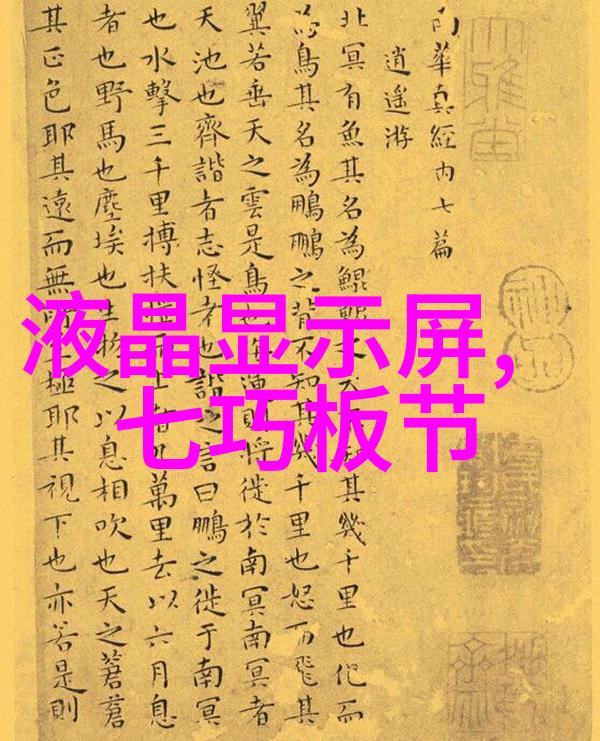 液晶显示屏，
七巧板节
南華真經内七篇
逍遥游
北冥有魚其名為鯤鯤之大知其幾千里也化而
為鳥其名為鵬鵬之背不知其幾千里也怒而飛其
翼若垂天之雲是鳥也海則將徙於南冥南冥者
天池也齊諧者志怪者也諧之言曰鵬之徙于南冥
也水擊三千里搏扶搖而上者九萬里去以六月息
者也野馬也塵埃也生物之以息相吹也天之蒼蒼
其正色耶其遠而無所至極耶其視下也亦若是則